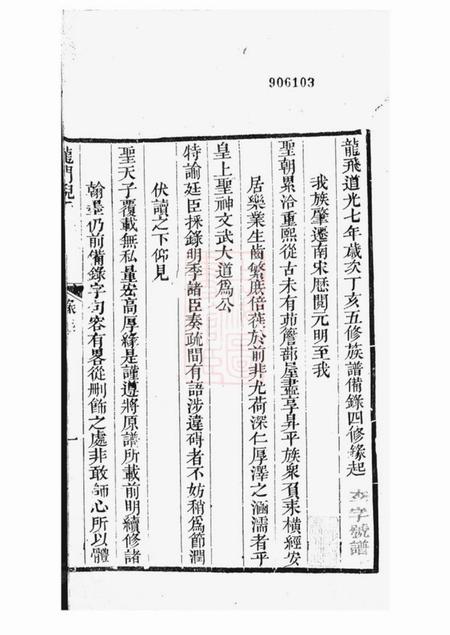 906103
龍飛道光七年歲次丁亥五修族譜備錄四修緣起
字號譜
我族肇遷南宋歷閱元明至我
聖朝累洽重熙從古未有茆簷蔀屋晝享昇平族衆負耒橫經安
居樂業生齒繁庶倍蓰於前非尤荷深仁厚澤之涵濡者乎
皇上聖神文武大道為公
特諭廷臣採錄明季諸臣奏疏間有語涉違碍者不妨稍為節潤
伏讀之下仰見
聖天子覆載無私量宏高厚緣是謹遵將原譜所載前明續修諸
翰墨仍前備錄字句容有畧從刪飾之處非敢師心所以體
龍門
一